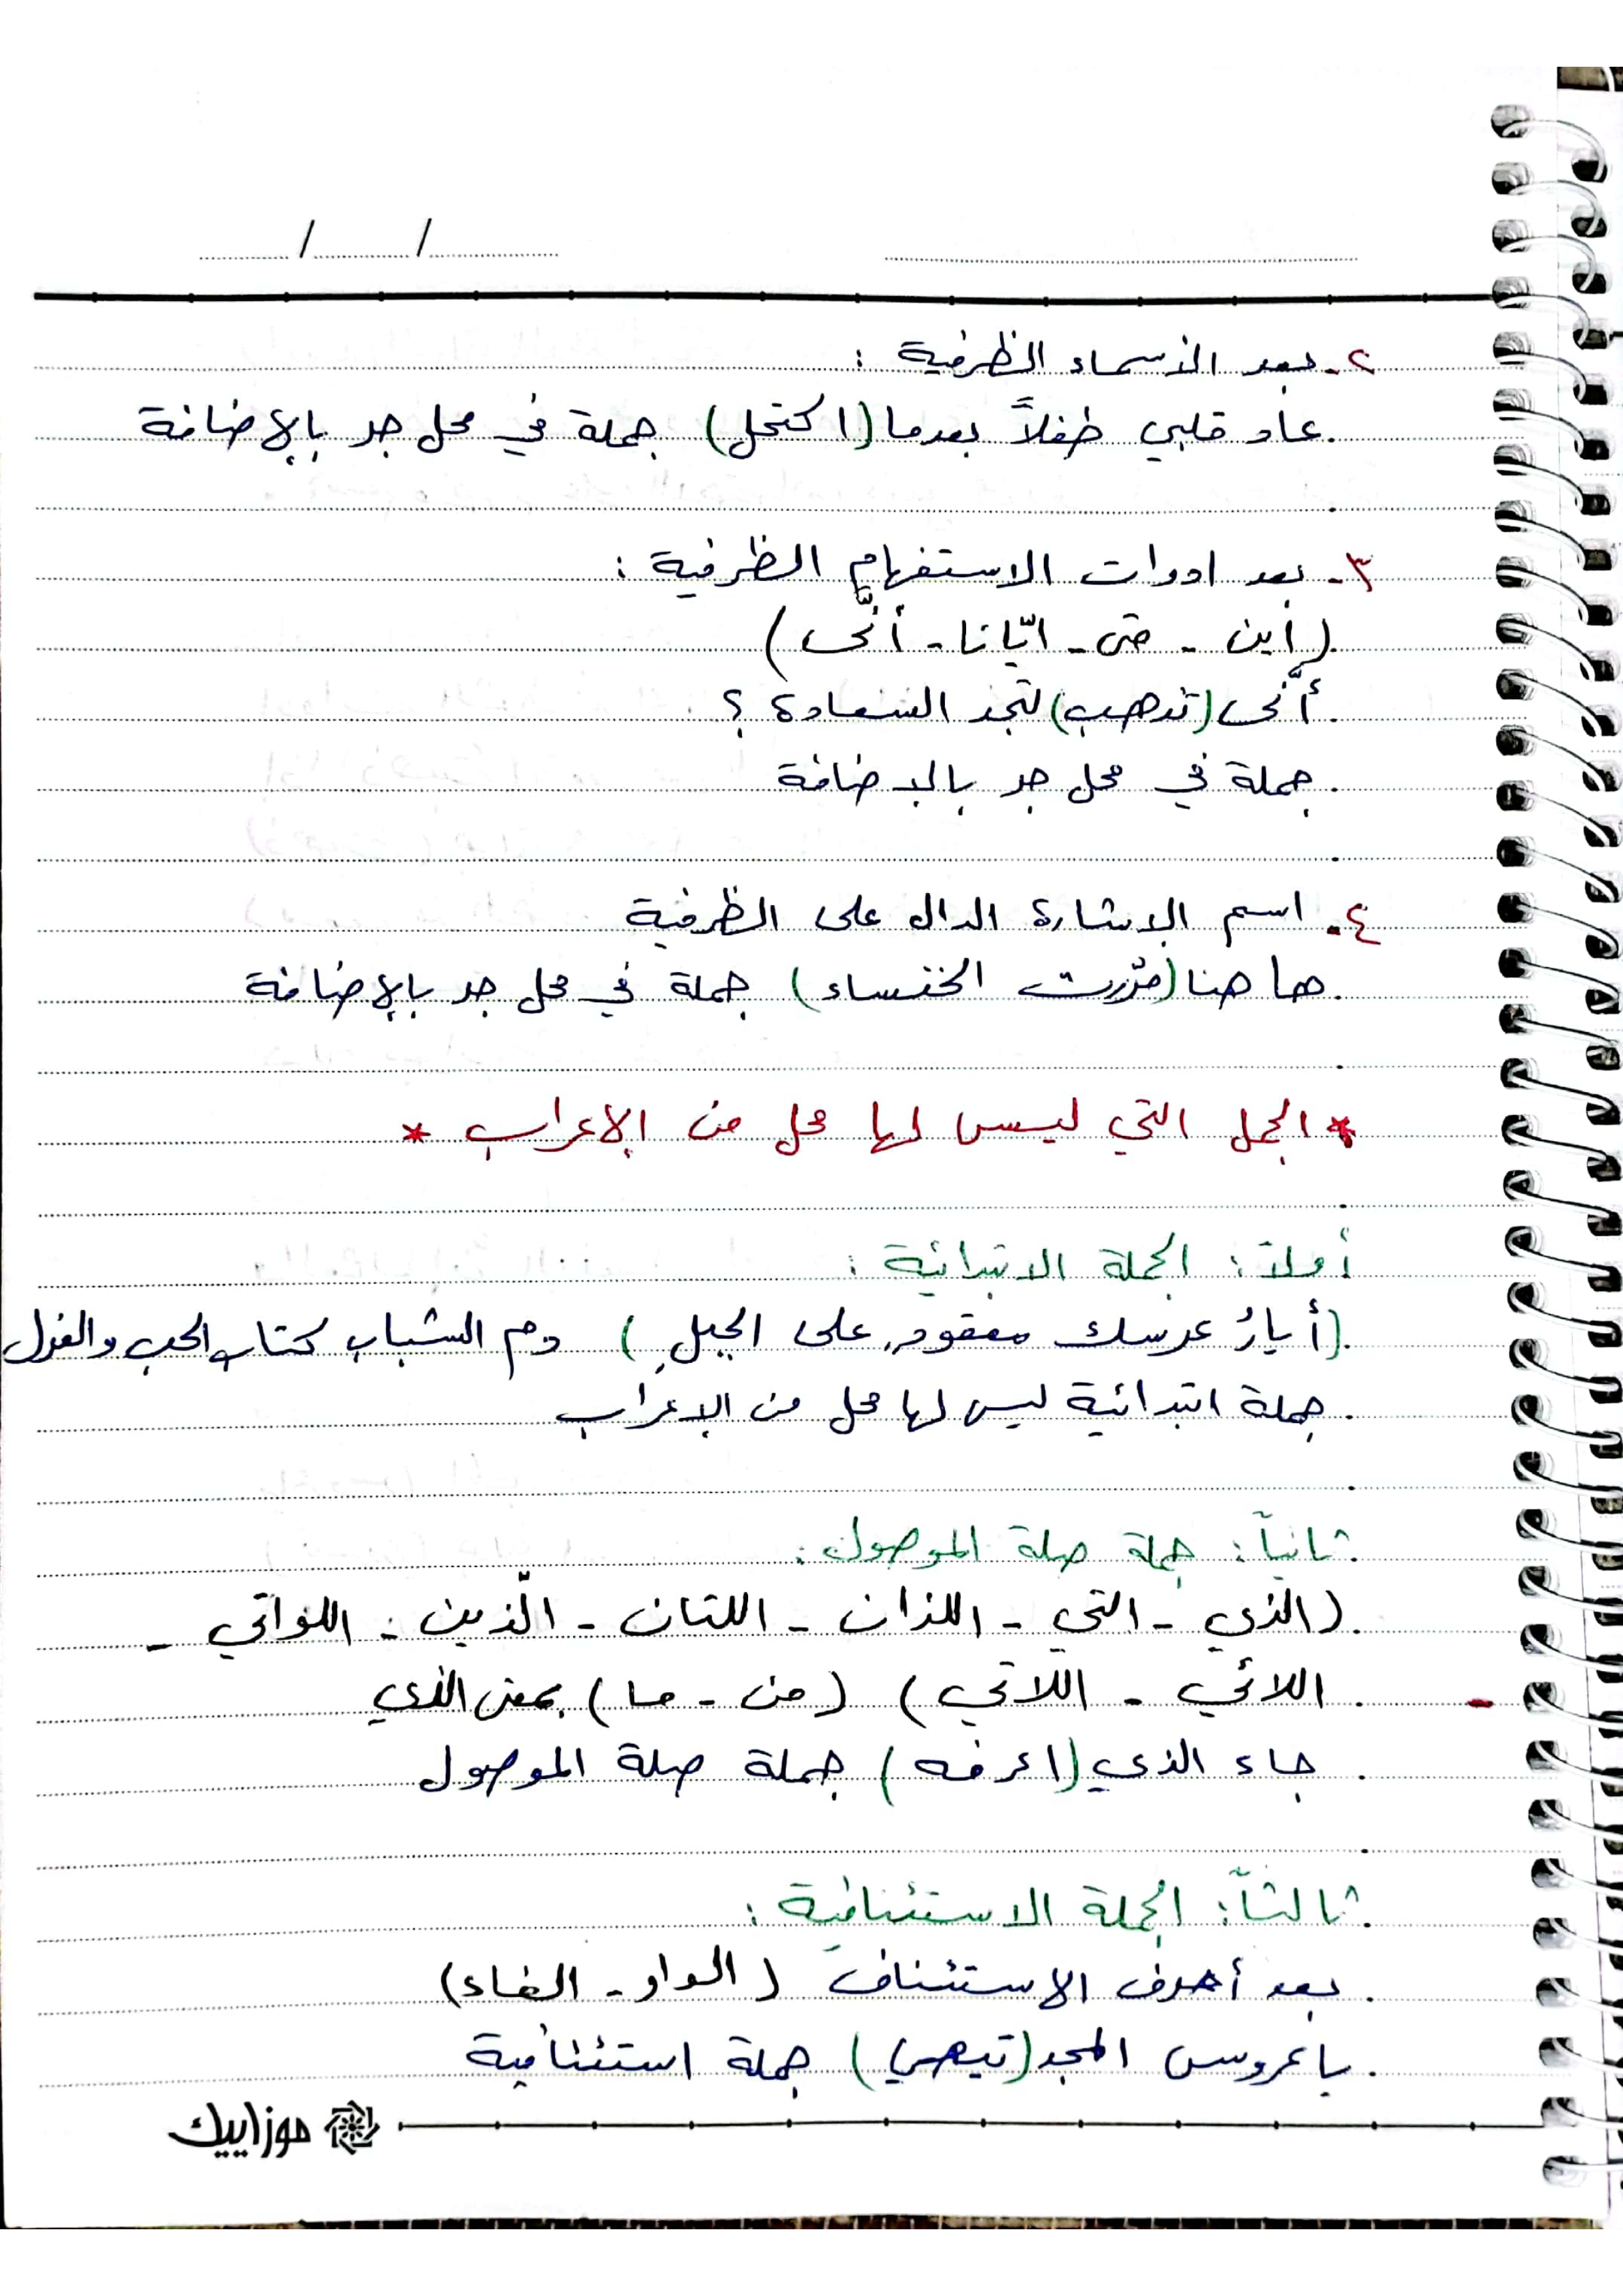 ٢- بعد الأسماء الظرفية :
عاد قلبي طفلاً بعدما (اكتحل) جملة في محل جر بالإضافة
٣- بعد ادوات الاستفهام الظرفية :
(أين - متى - ايّانا - أنَّى)
أنَّى (تذهب) لتجد السعادة ؟
جملة في محل جر بالإضافة
٤- اسم الإشارة الدال على الظرفية
ها هنا (مرّرت الخنساء) جملة في محل جر بالإضافة
* الجمل التي ليس لها محل من الإعراب *
أولاً : الجملة الابتدائية :
(أيارُ عرسك معقودٌ على الجبلِ) دم الشباب كتاب الحب والغزل
جملة ابتدائية ليس لها محل من الإعراب
ثانياً : جملة صلة الموصول :
(الذي - التي - اللذان - اللتان - الّذين - اللواتي -
اللائي - اللاتي) (من - ما) بمعنى الذي
جاء الذي (اعرفه) جملة صلة الموصول
ثالثاً : الجملة الاستئنافية :
بعد أحرف الاستئناف (الواو - الفاء)
يا عروس المجد (تيهي) جملة استئنافية
موزاييك